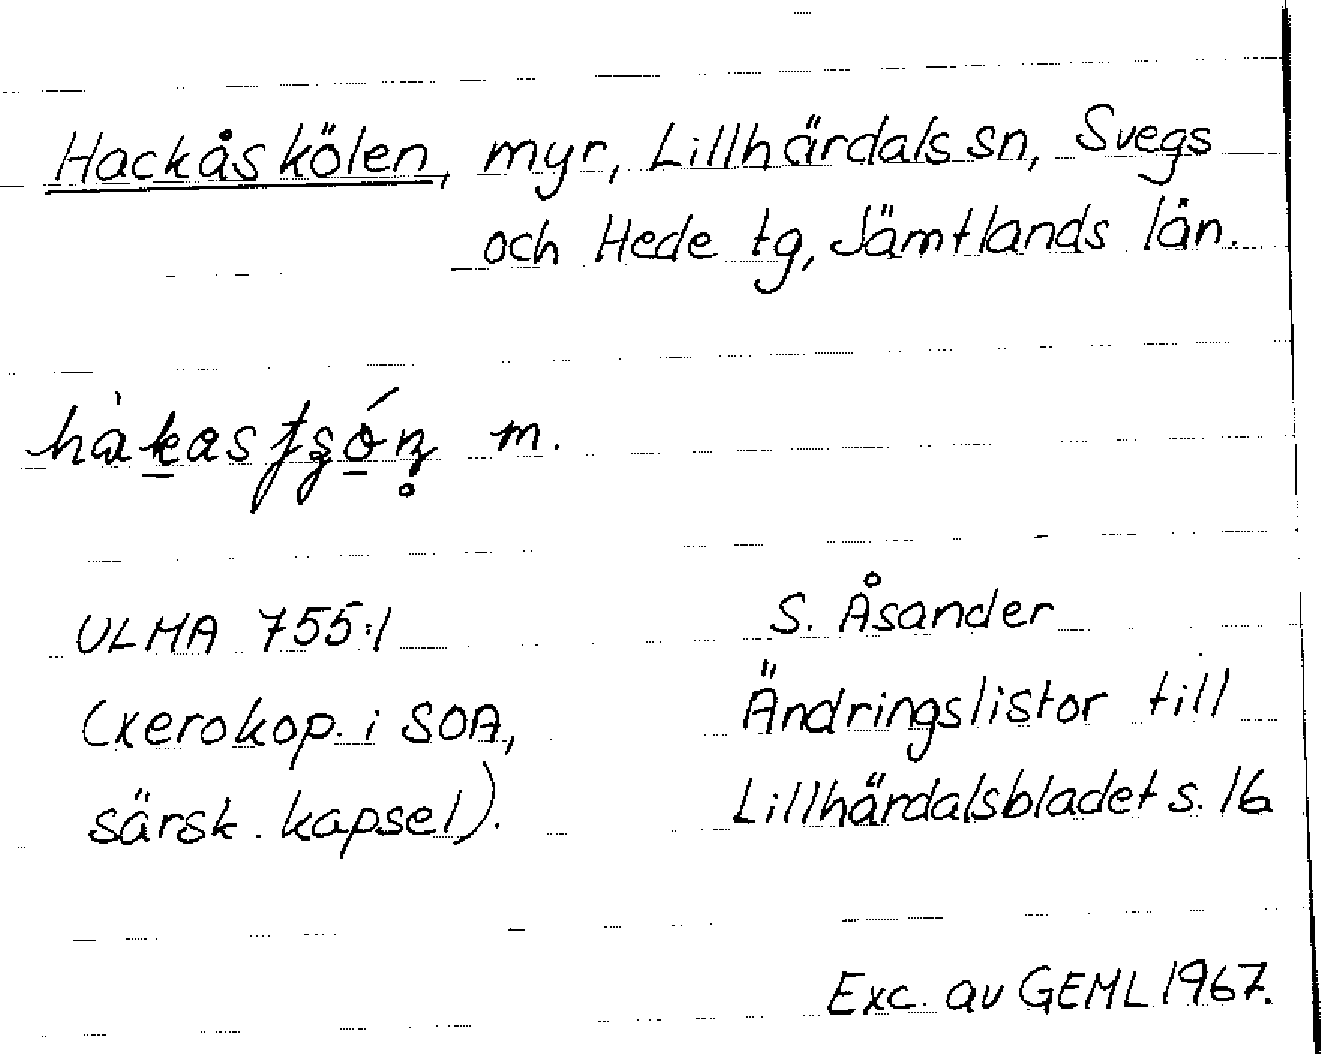 Hackåskölen, myr, Lillhärdals sn, Svegs
och Hede tg, Jämtlands län.
m.
ULMA 755:1
S. Åsander
(xerokop. i SOA,
Ändringslistor till
särsk. kapsel).
Lillhärdalsbladet s. 16
Exc. av GEML 1967.